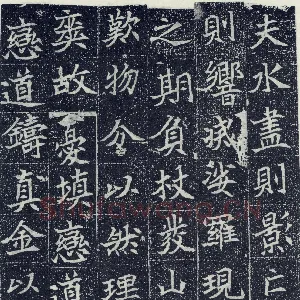 夫水盡則影亡
則響滅娑羅現
之期負杖發山
歎物分以然理
爽故憂填戀道
戀道鑄真金以